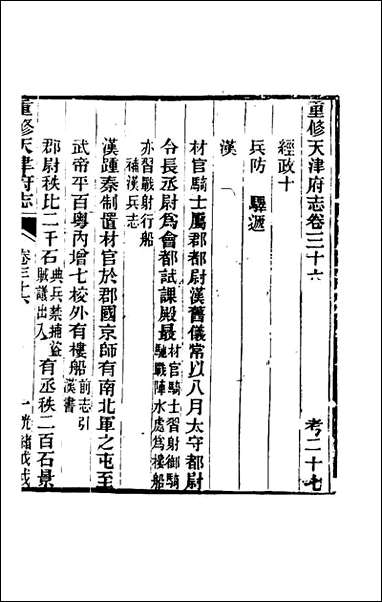 重修天津府志卷三十六 考二十七
經政十
兵防 驛遞
漢
材官騎士屬郡都尉漢舊儀常以八月太守都尉
令長丞尉爲會都試課殿最材官騎士習射御騎馳戰陣水處爲樓船
亦習戰射行船補漢兵志
漢踵秦制置材官於郡國京師有南北軍之屯至
武帝平百粵內增七校外有樓船前志引漢書
郡尉秩比二千石典兵禁捕盜賊議出入有丞秩二百石景
重修天津府志 卷三十六 一 光緒戊戌